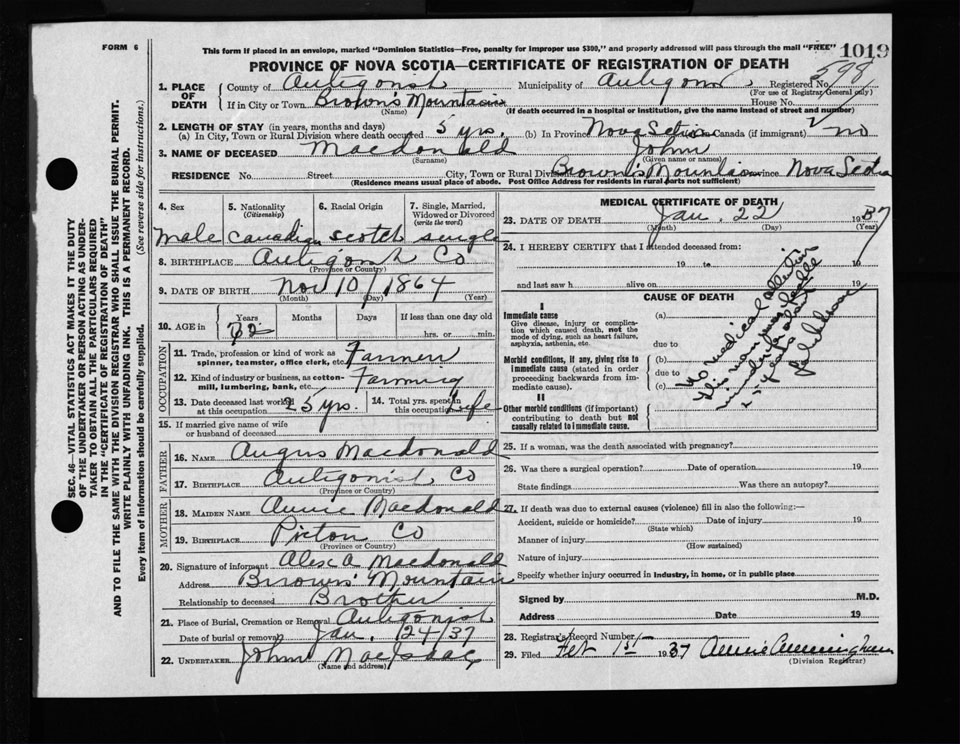 FORM 6
This form if placed in an envelope, marked "Dominion Statistics—Free, penalty for improper use $300," and properly addressed will pass through the mail "FREE" 1019
PROVINCE OF NOVA SCOTIA—CERTIFICATE OF REGISTRATION OF DEATH
598
1. PLACE OF DEATH
County of Antigonish Municipality of Registered No.
(For use of Registrar General only)
If in City or Town Brown's Mountain House No.
(Name) (If death occurred in a hospital or institution, give the name instead of street and number)
2. LENGTH OF STAY (in years, months and days)
(a) In City, Town or Rural Division where death occurred 5 yrs. (b) In Province Nova Scotia Canada (if immigrant) no
3. NAME OF DECEASED Macdonald John
(Surname) (Given name or names)
RESIDENCE No. Street City, Town or Rural Division Brown's Mountain Province Nova Scotia
(Residence means usual place of abode. Post Office Address for residents in rural parts not sufficient)
4. Sex 5. Nationality (Citizenship) 6. Racial Origin 7. Single, Married, Widowed or Divorced (write the word)
male Canadian Scotch single
8. BIRTHPLACE Antigonish Co
(Province or Country)
9. DATE OF BIRTH Nov 10/1864
(Month) (Day) (Year)
10. AGE in Years Months Days If less than one day old
72 hrs. or min.
OCCUPATION
11. Trade, profession or kind of work as spinner, teamster, office clerk, etc. Farmer
12. Kind of industry or business, as cotton-mill, lumbering, bank, etc. Farming
13. Date deceased last worked at this occupation 5 yrs. 14. Total yrs. spent in this occupation Life
15. If married give name of wife or husband of deceased
FATHER
16. NAME Angus Macdonald
17. BIRTHPLACE Antigonish Co
(Province or Country)
MOTHER
18. MAIDEN NAME Annie Macdonald
19. BIRTHPLACE Pictou Co
(Province or Country)
20. Signature of informant Alex A Macdonald
Address Browns' Mountain
Relationship to deceased Brother
21. Place of Burial, Cremation or Removal Antigonish
Date of burial or removal Jan. 24/37
22. UNDERTAKER John MacIsaac
(Name and address)
MEDICAL CERTIFICATE OF DEATH
23. DATE OF DEATH Jan. 22 1937
(Month) (Day) (Year)
24. I HEREBY CERTIFY that I attended deceased from:
19 to 19
and last saw h alive on 19
CAUSE OF DEATH
I
Immediate cause (a)
Give disease, injury or complication which caused death, not the mode of dying, such as heart failure, asphyxia, asthenia, etc.
due to
Morbid conditions, if any, giving rise to immediate cause (stated in order proceeding backwards from immediate cause).
(b)
due to
(c)
II
Other morbid conditions (if important) contributing to death but not causally related to immediate cause.
No medical attention
This man was feeble
25. If a woman, was the death associated with pregnancy?
26. Was there a surgical operation? Date of operation 19
State findings Was there an autopsy?
27. If death was due to external causes (violence) fill in also the following:—
Accident, suicide or homicide? Date of injury 19
(State which)
Manner of injury
(How sustained)
Nature of injury
Specify whether injury occurred in industry, in home, or in public place
Signed by M.D.
Address Date 19
28. Registrar's Record Number
29. Filed Feb 1st 1937 Annie Cunningham
(Division Registrar)
SEC. 46—VITAL STATISTICS ACT MAKES IT THE DUTY
OF THE UNDERTAKER OR PERSON ACTING AS UNDER-
TAKER TO OBTAIN ALL THE PARTICULARS REQUIRED
IN THE "CERTIFICATE OF REGISTRATION OF DEATH"
AND TO FILE THE SAME WITH THE DIVISION REGISTRAR WHO SHALL ISSUE THE BURIAL PERMIT.
WRITE PLAINLY WITH UNFADING INK. THIS IS A PERMANENT RECORD.
Every item of information should be carefully supplied. (See reverse side for instructions.)